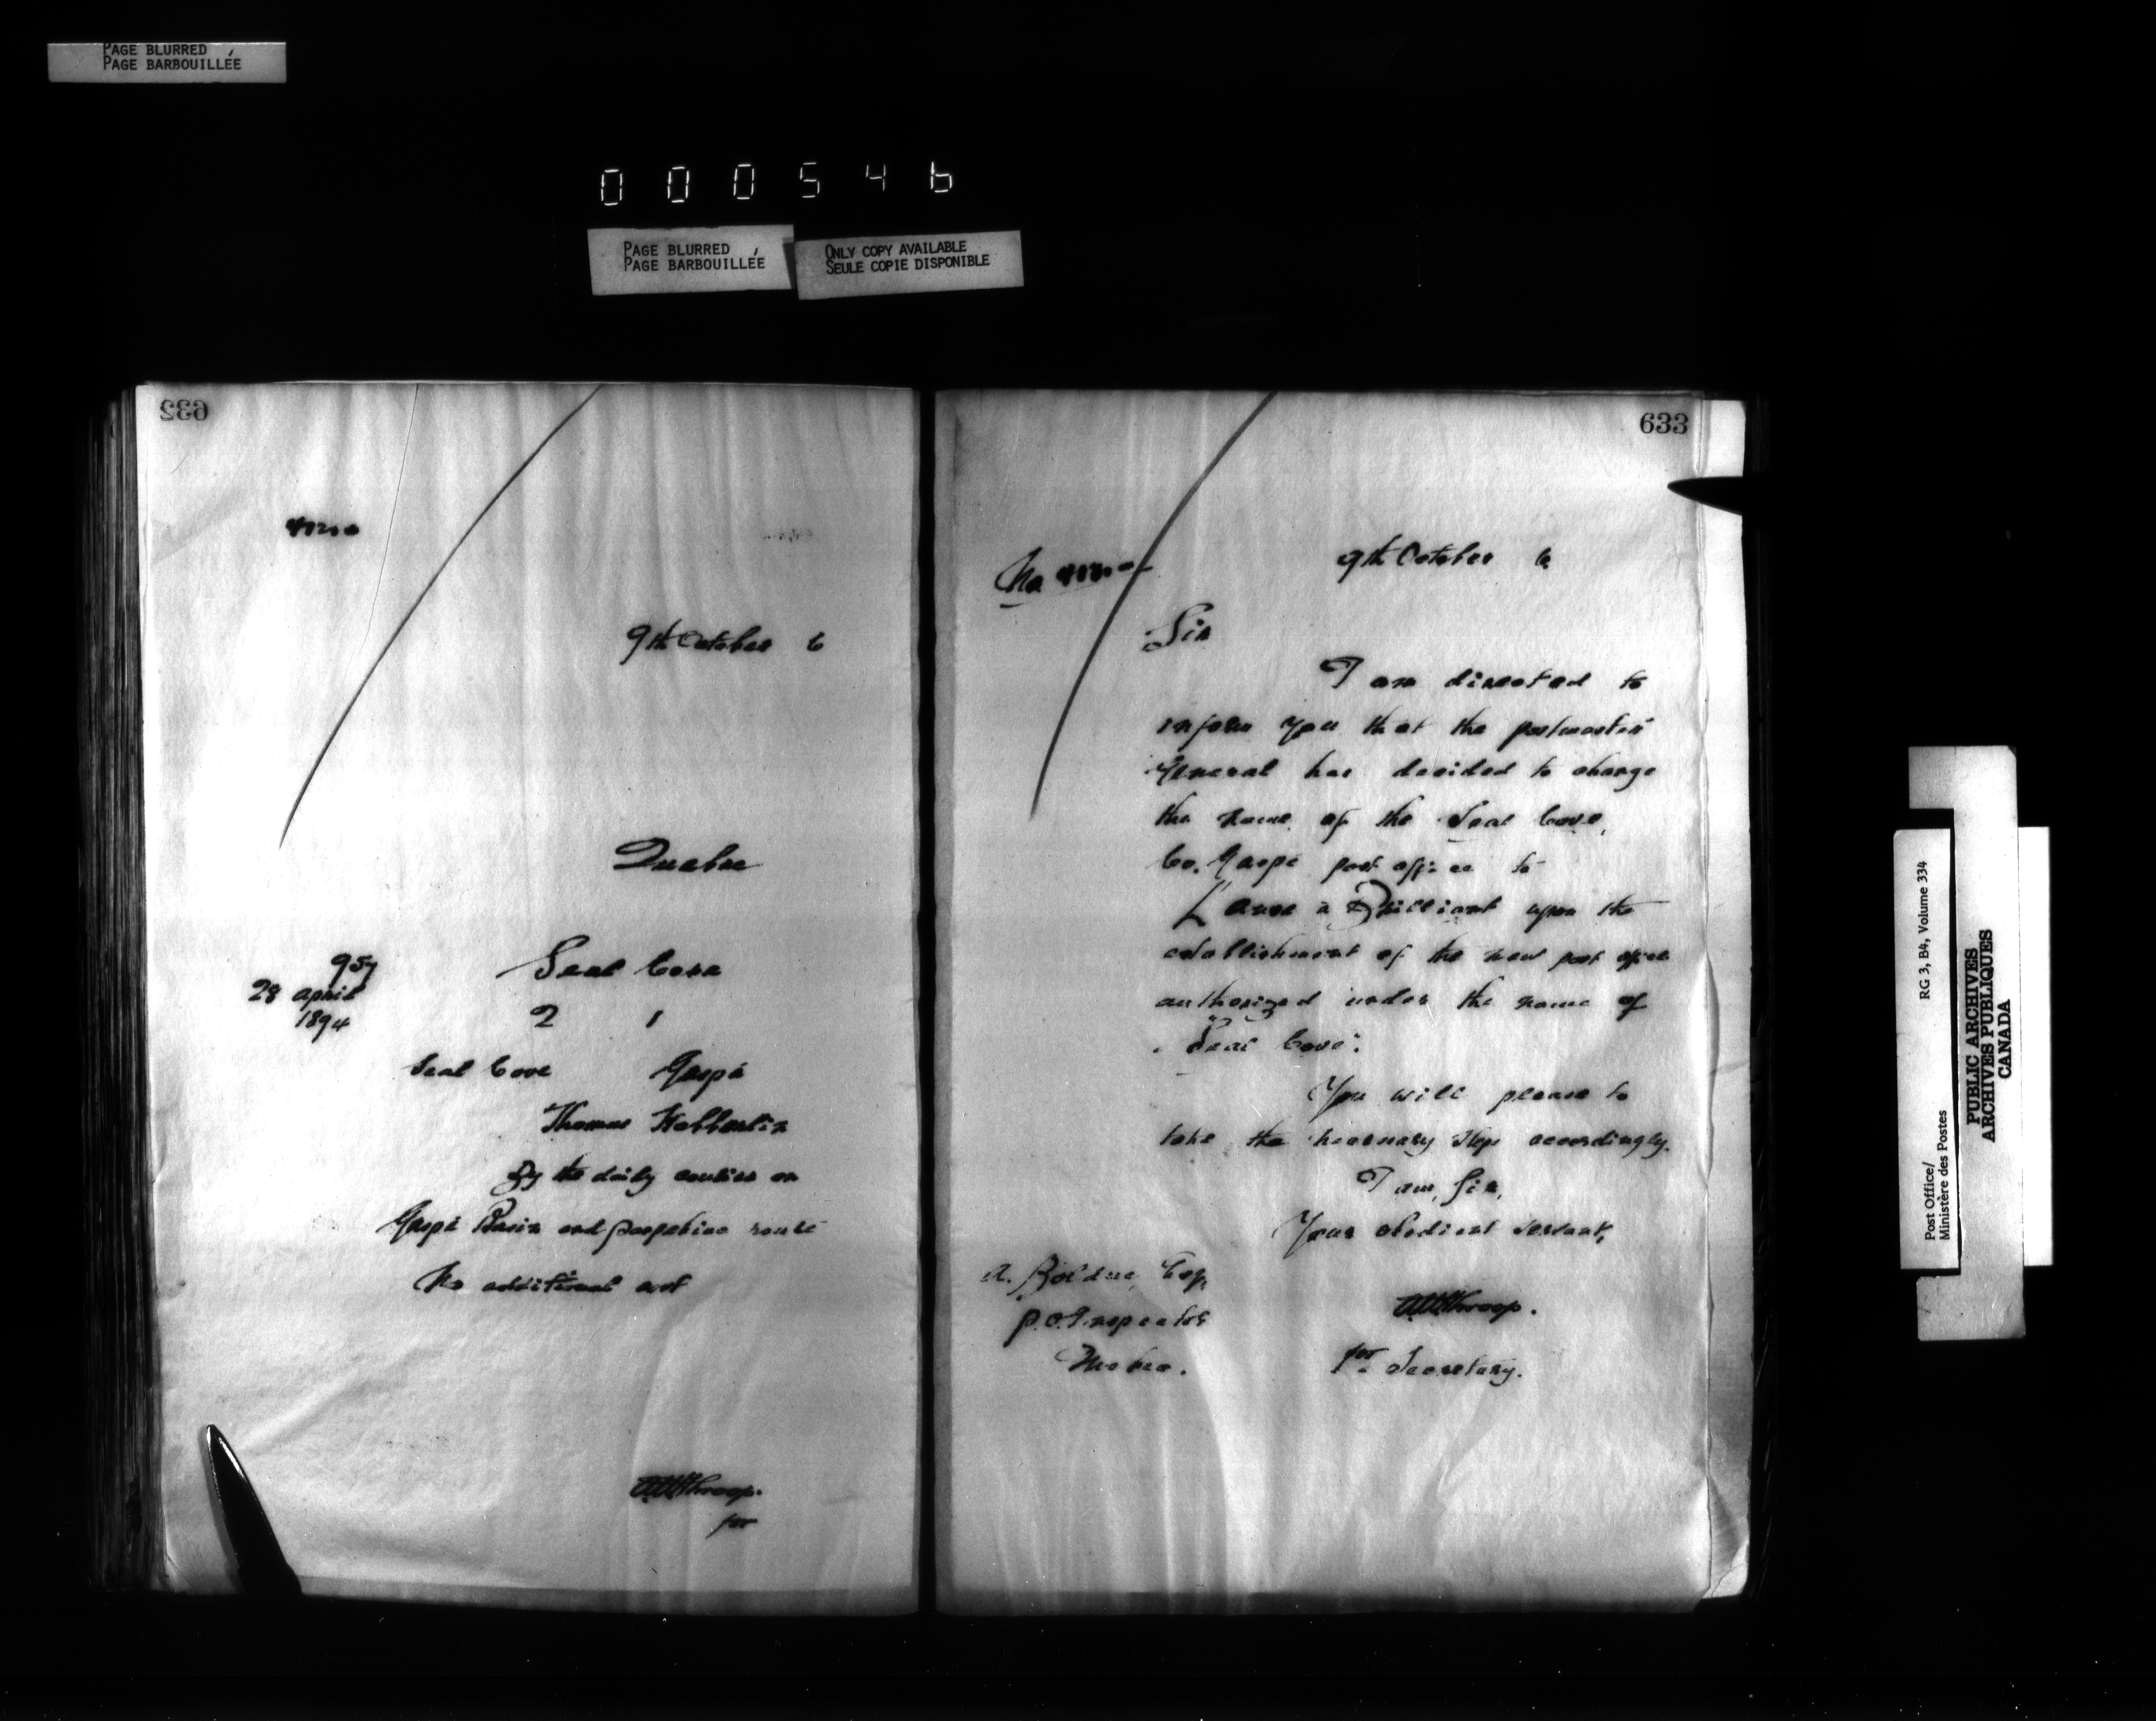 PAGE BLURRED
PAGE BARBOUILLÉE
000546
PAGE BLURRED
PAGE BARBOUILLÉE
ONLY COPY AVAILABLE
SEULE COPIE DISPONIBLE
632
9th October 6
Quebec
957
28 April
1894
Seal Cove
2 1
Seal Cove Gaspé
Thomas
By the daily courier on
Gaspé Basin and Paspebiac route
No additional cost
for
633
No
9th October 6
Sir
I am directed to
inform you that the postmaster
General has decided to change
the name of the Seal Cove,
Co. Gaspé post office to
L'anse à Brilliant upon the
establishment of the new post office
authorized under the name of
"Seal Cove".
You will please to
take the necessary steps accordingly.
I am, Sir,
Your obedient servant,
A. Bolduc, Esq,
P.O. Inspector
Quebec.
Throop.
for Secretary.
Post Office/
Ministère des Postes
RG 3, B4, Volume 334
PUBLIC ARCHIVES
ARCHIVES PUBLIQUES
CANADA